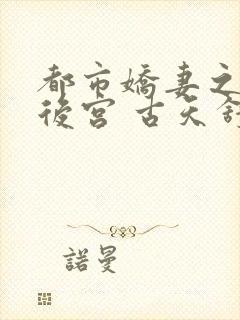 都市嬌妻之
後宮 古天
諾曼